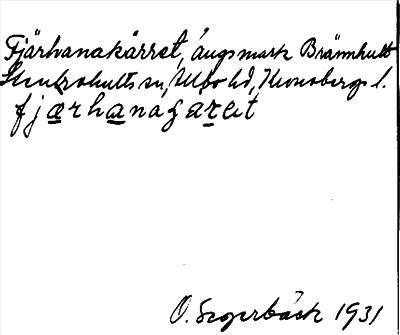 Fjärhanakärret, ängsmark Brännhult
Stenbrohults sn, Allbo hd, Kronobergs l.
fjærhanagaret
O. Segerbäck 1931